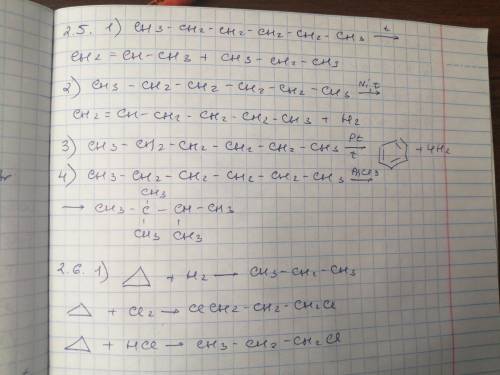 2.5. 1) CH3-CH2-CH2-CH2-CH2-CH3 t→
CH2=CH-CH3 + CH3-CH2-CH3
2) CH3-CH2-CH2-CH2-CH2-CH3 Ni, t→
CH2=CH-CH2-CH2-CH2-CH3 + H2
3) CH3-CH2-CH2-CH2-CH2-CH3 Pt t→ + 4H2
4) CH3-CH2-CH2-CH2-CH2-CH3 AlCl3→
CH3
→ CH3-C-CH-CH3
CH3 CH3
2.6. 1) △ + H2 → CH3-CH2-CH3
△ + Cl2 → ClCH2-CH2-CH2Cl
△ + HCl → CH3-CH2-CH2Cl